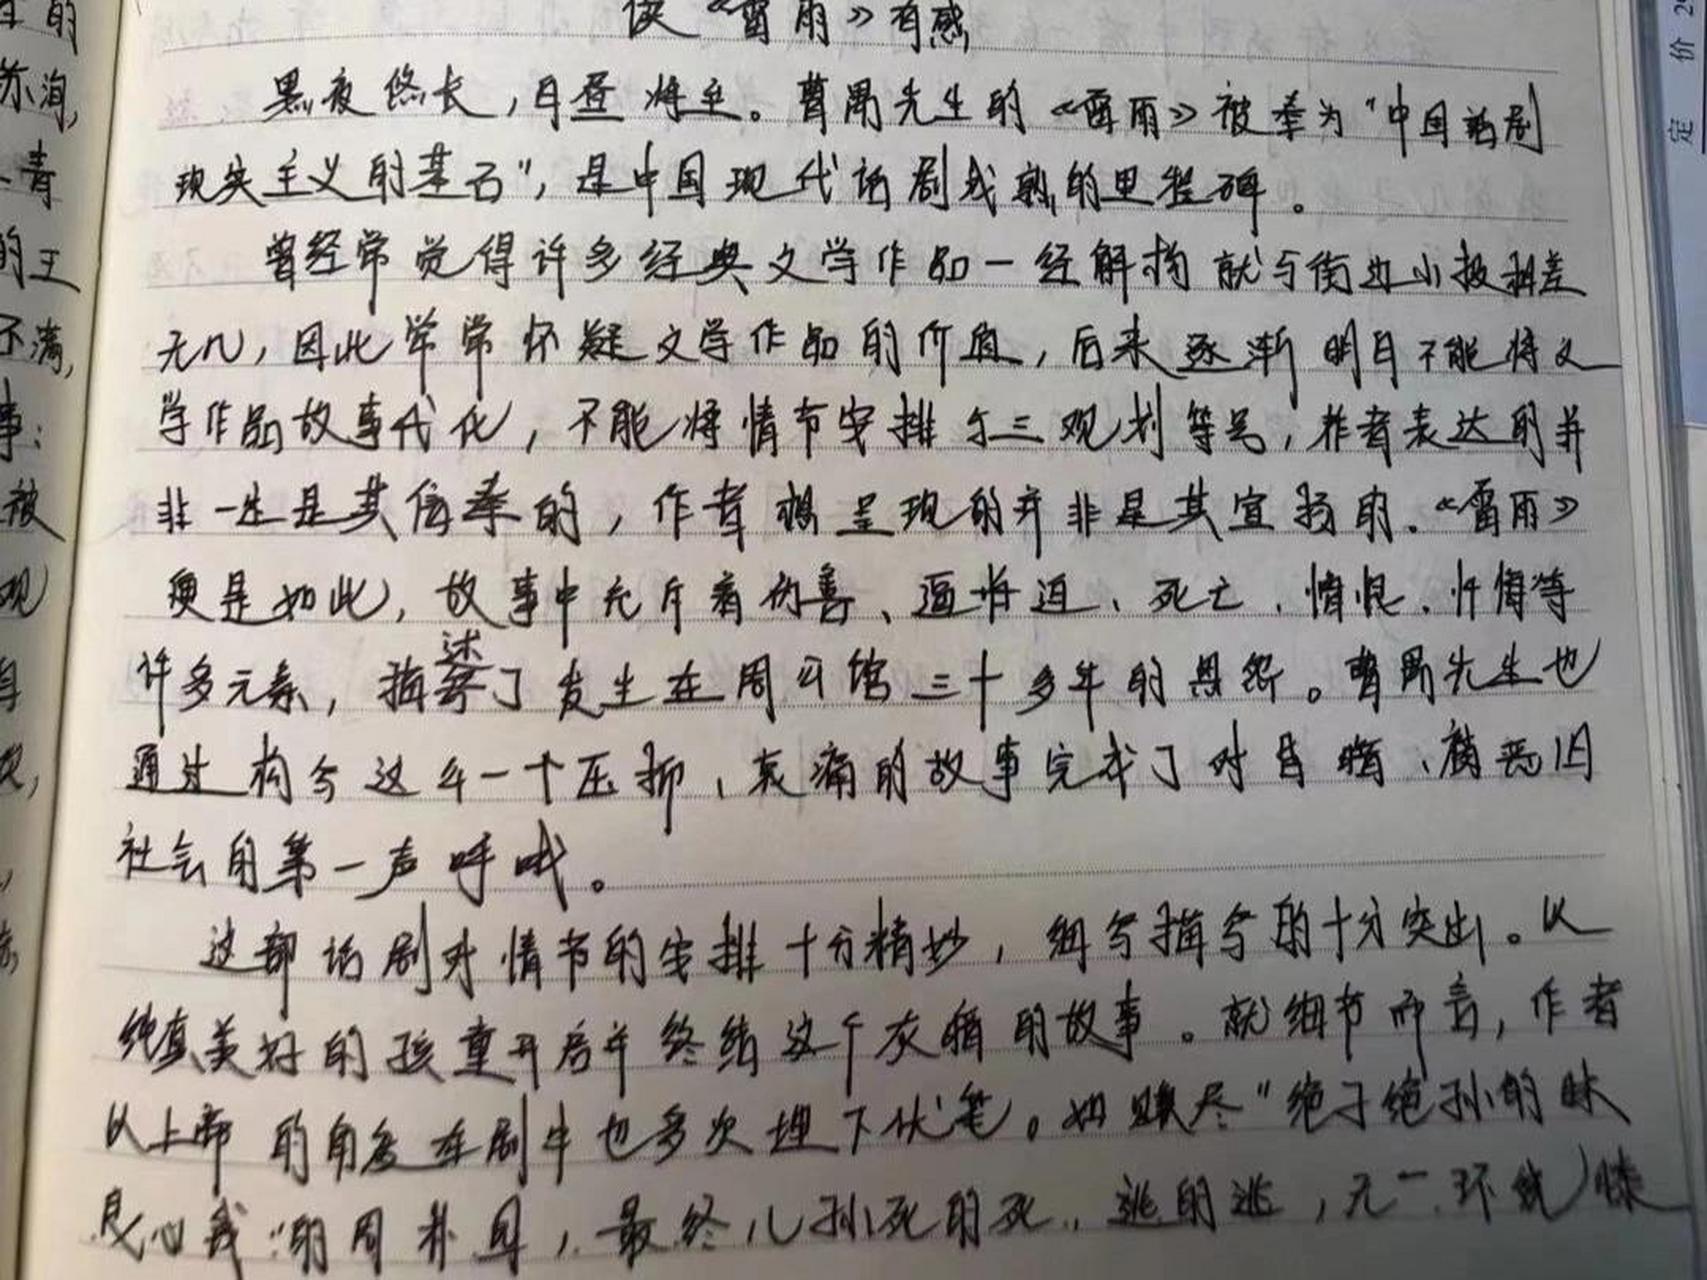 读《雷雨》有感
黑夜悠长，白昼将至。曹禺先生的《雷雨》被奉为“中国话剧
现实主义的基石”，是中国现代话剧成熟的里程碑。
曾经常觉得许多经典文学作品一经解构就与街边小报相差
无几，因此常常怀疑文学作品的价值，后来逐渐明白不能将文
学作品故事代化，不能将情节安排与三观划等号，作者表达的并
非一定是其信奉的，作者想呈现的并非是其宣扬的.《雷雨》
便是如此，故事中充斥着伪善、逼迫、死亡、憎恨、忏悔等
许多元素，描述了发生在周公馆三十多年的恩怨。曹禺先生也
通过构写这么一个压抑、哀痛的故事完成了对黑暗、腐恶旧
社会的第一声呼喊。
这部话剧对情节的安排十分精妙，细写描写的十分突出。以
纯真美好的孩童开启并终结这个灰暗的故事。就细节而言，作者
以上帝的角度在剧中也多次埋下伏笔。如赚尽“绝子绝孙的昧
良心钱”的周朴园，最终儿孙死的死，逃的逃，无一环绕膝
定价 29
的
苏洵,
青
的王
不满,
事:
被
观